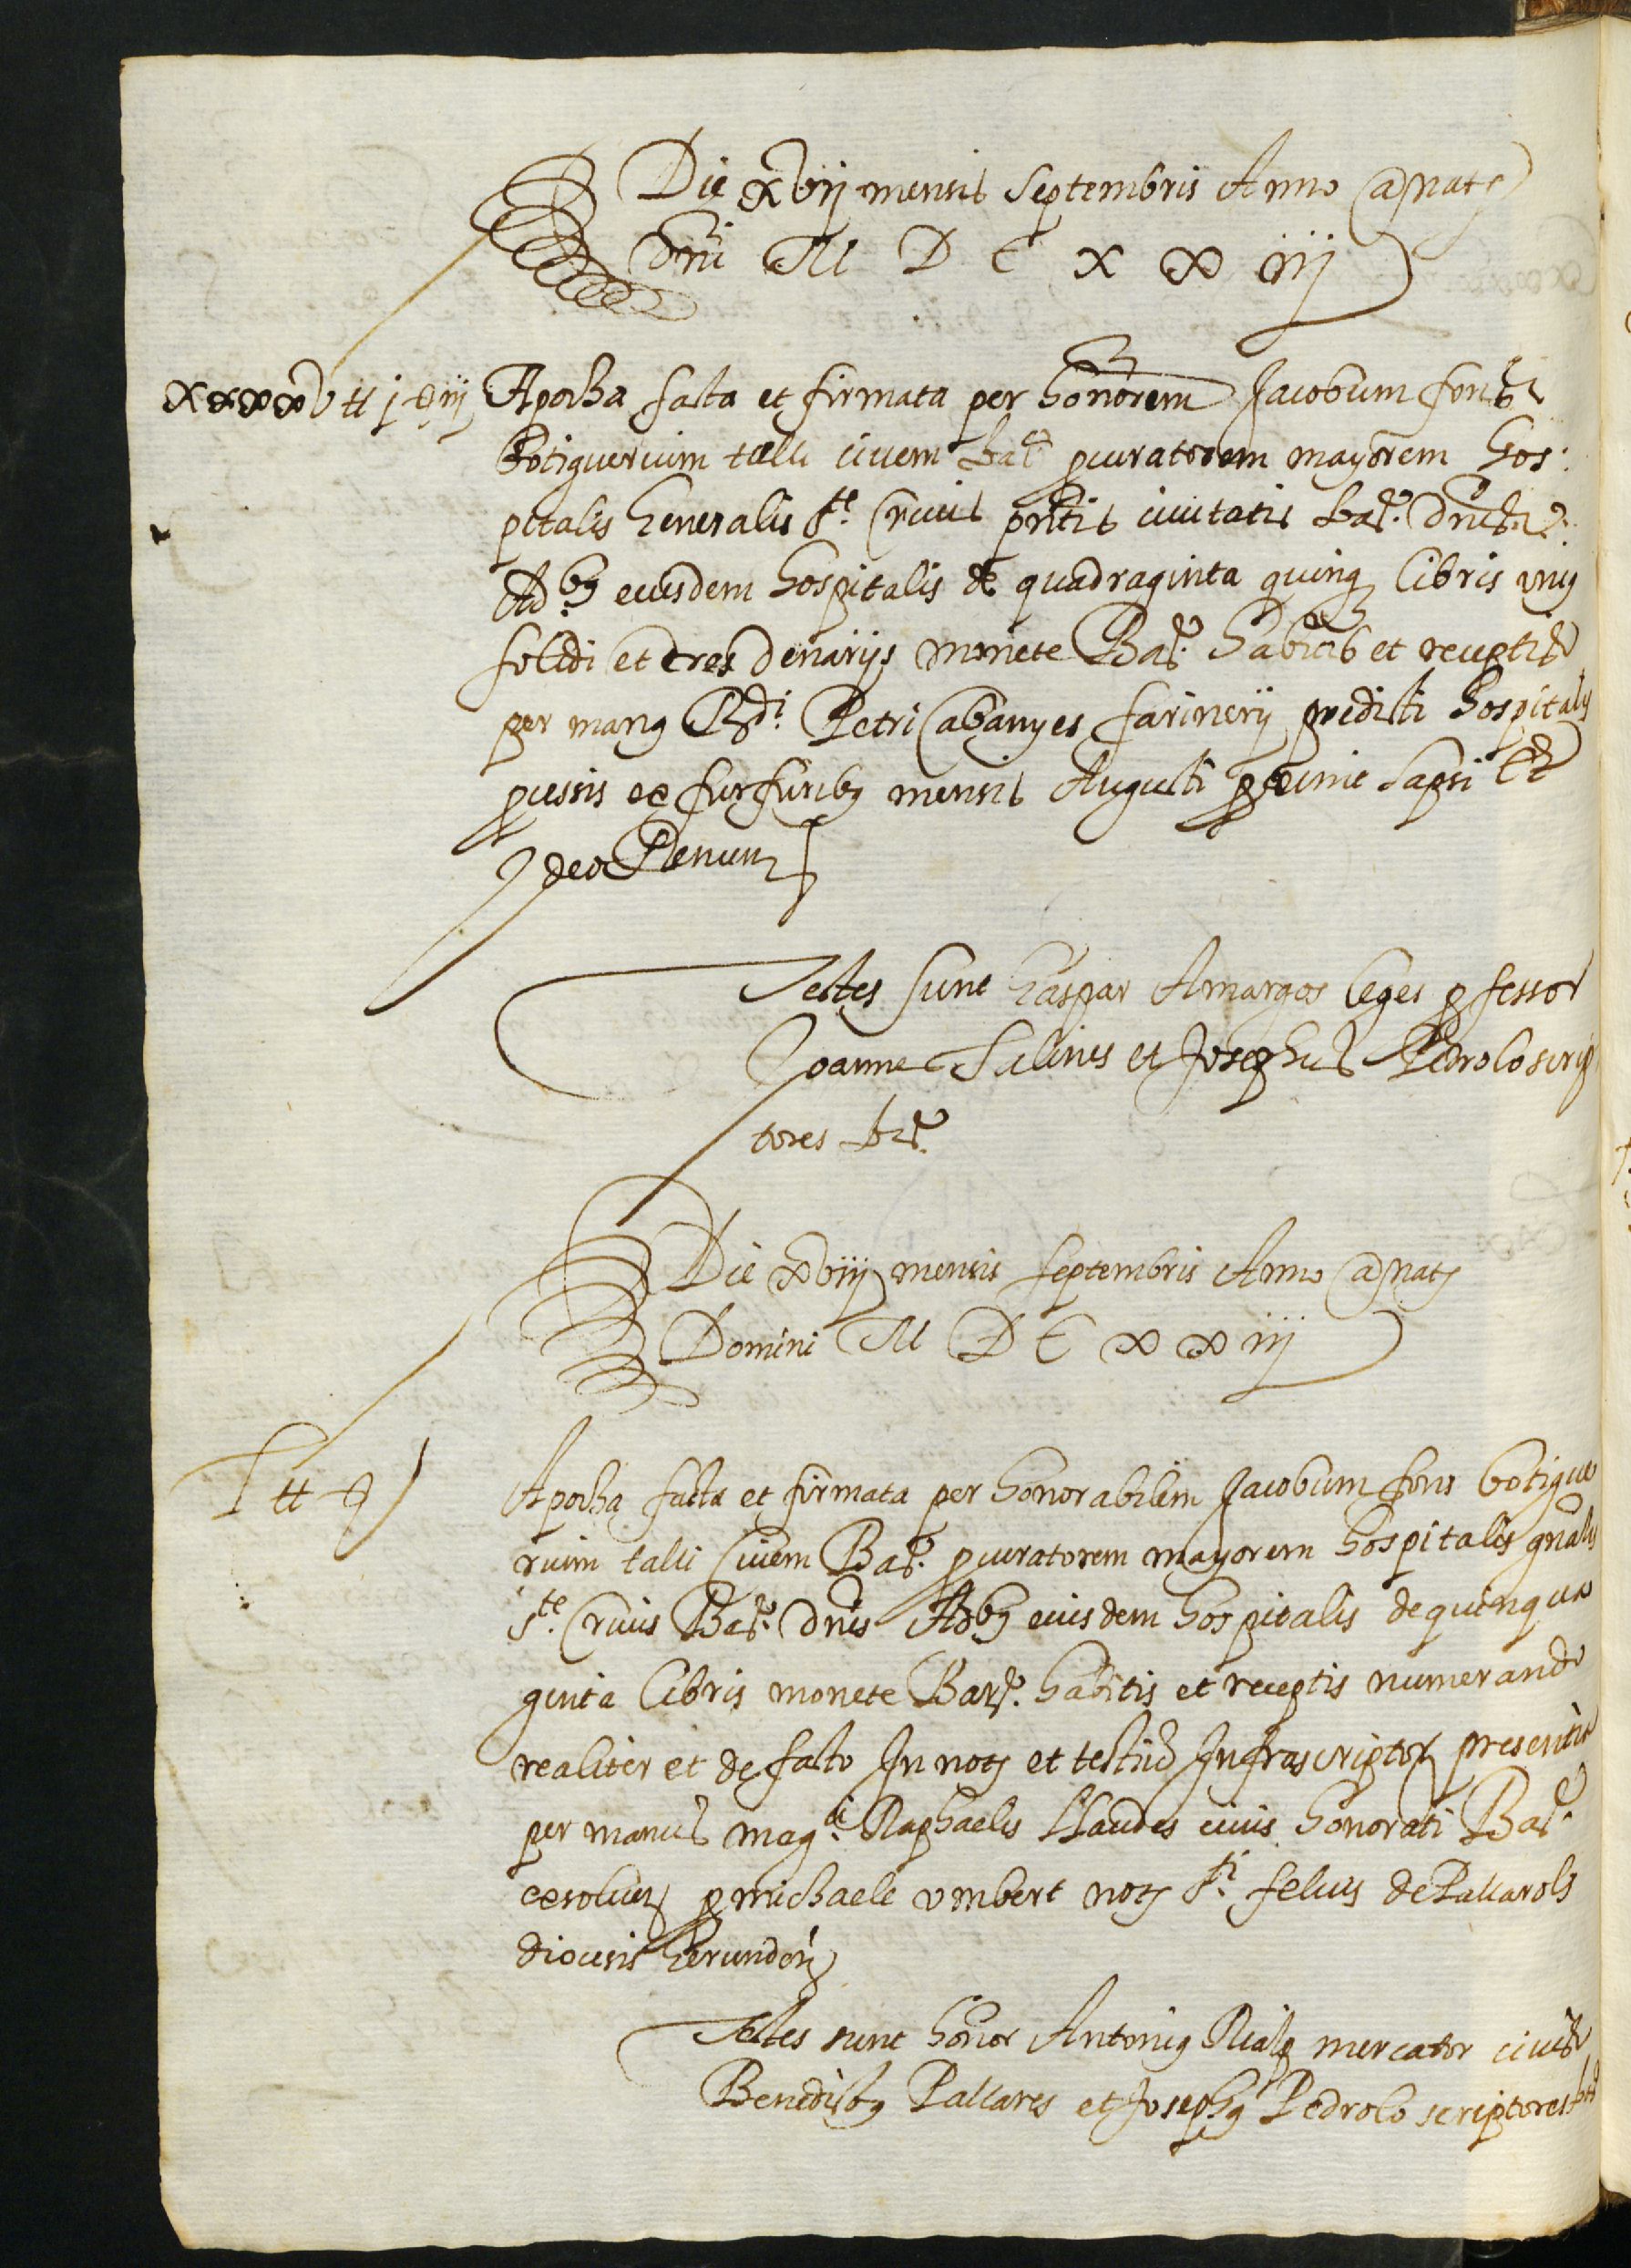 Die xvij mensis Septembris Anno a natt
Dñi M D C x x iij
xxxxv tt j s iij Apocha facta et firmata per honorem Jacobum fons
Botiguerium talli civem Barᵉ procuratorem mayorem Hos:
pitalis Generalis Sᵗᵉ Crucis pñtis civitatis Barᵉ dñis
Adᵇ⁹ eiusdem hospitalis de quadraginta quinq libris un⁹
solidi et tres denarijs monete Barᵉ habitis et receptis
per man⁹ Rᵈⁱ Petri Cabanyes farinerij predicti hospitalis
pcessis ex furfurib⁹ mensis Augusti proxime lapsi Et
Ideo Renun
Testes sunt Gaspar Amargos leges professor
Joannes Salines et Josephus Pedrolo scrip
tores Barᵉ
Die xviij mensis septembris Anno a natt
Domini M D C x x iij
L tt s
Apocha facta et firmata per honorabilem Jacobum fons botigue
rium talli Civem Barᵉ procuratorem mayorem hospitalis gñalis
Sᵗᵉ Crucis Barᵉ dñis Adb⁹ eiusdem hospitalis de quinqua
ginta libris monete Barᵉ habitis et receptis numerando
realiter et de facto In not et testiũ Infrascriptor presentia
per manus magᶜⁱ Raphaelis Llaudes civis honorati Barᵉ
exsolut p michaele vmbert not Sᵗⁱ felius de Pallarols
diocesis Gerunden
Testes sunt honor Antoni⁹ Rialp mercator civis
Benedict⁹ Pallares et Joseph⁹ Pedrolo scriptores